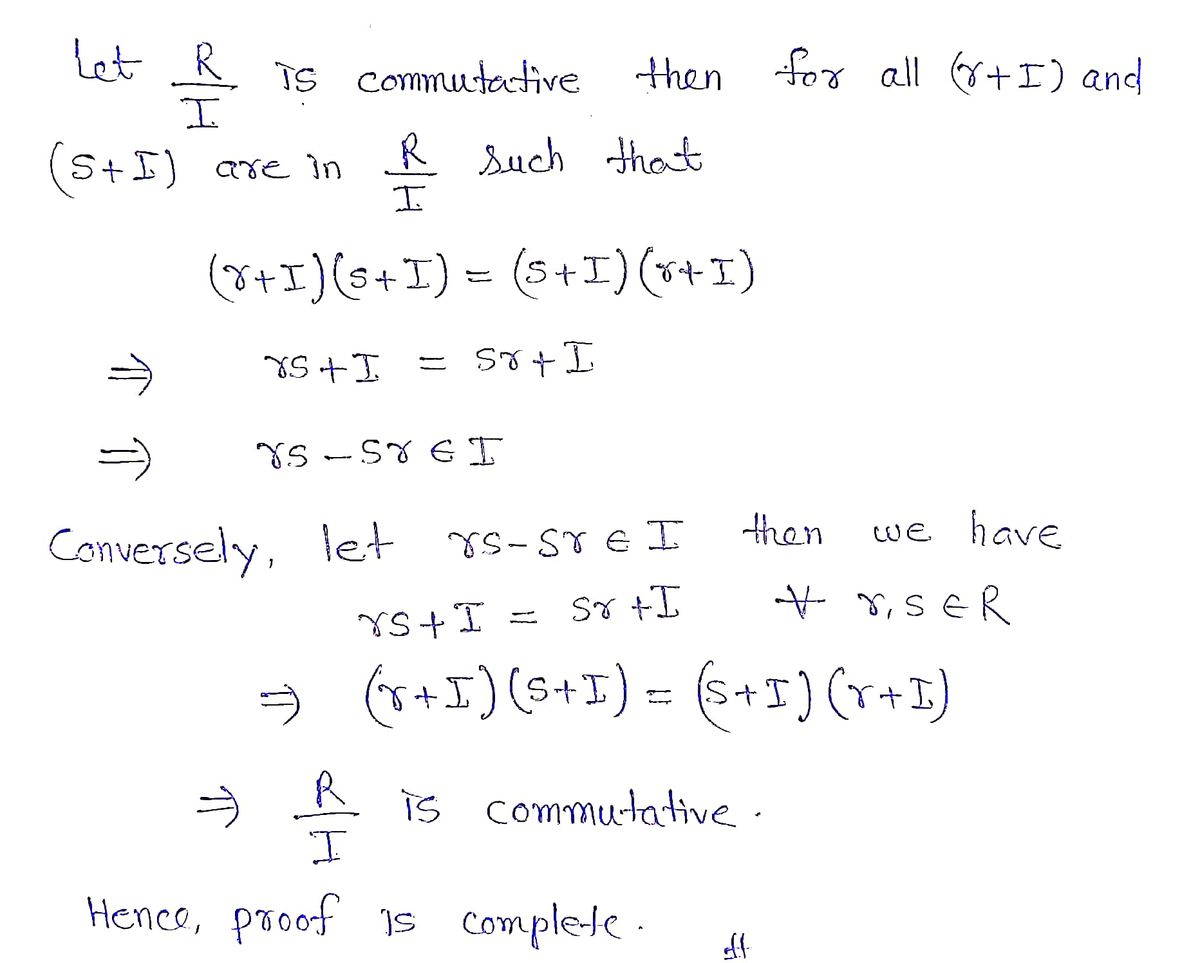 Let R/I is commutative then for all (r+I) and
(s+I) are in R/I such that
(r+I)(s+I) = (s+I)(r+I)
⇒ rs+I = sr+I
⇒ rs-sr ∈ I
Conversely, let rs-sr ∈ I then we have
rs+I = sr+I ∀ r, s ∈ R
⇒ (r+I)(s+I) = (s+I)(r+I)
⇒ R/I is commutative.
Hence, proof is complete.